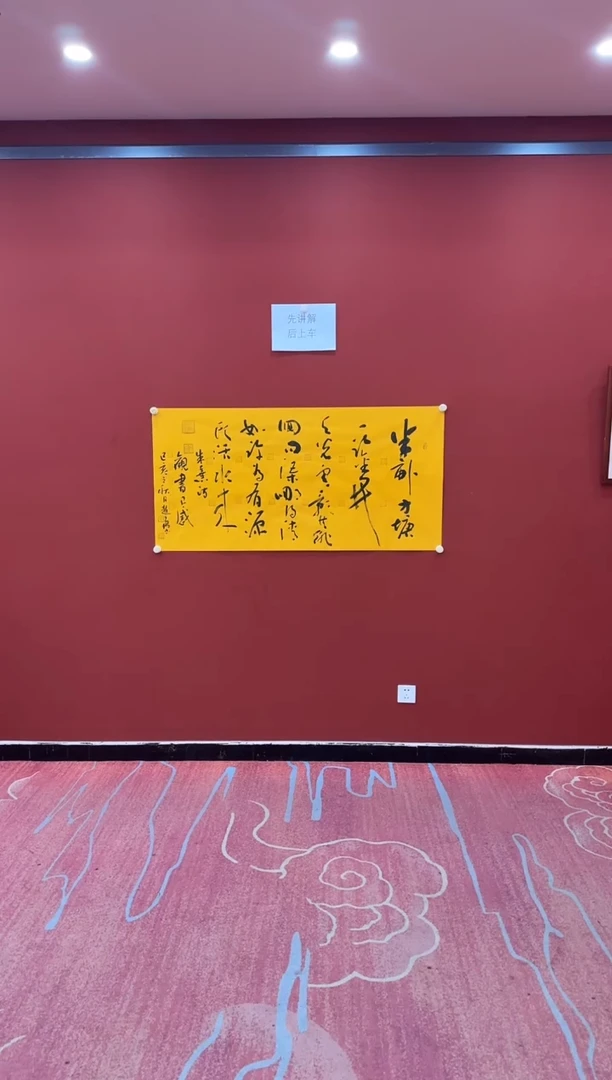 先讲解
后上车
半畝方塘
一鉴開
天光雲影共徘
徊问渠哪得清
如许为有源
头活水来
朱熹诗
觀書有感